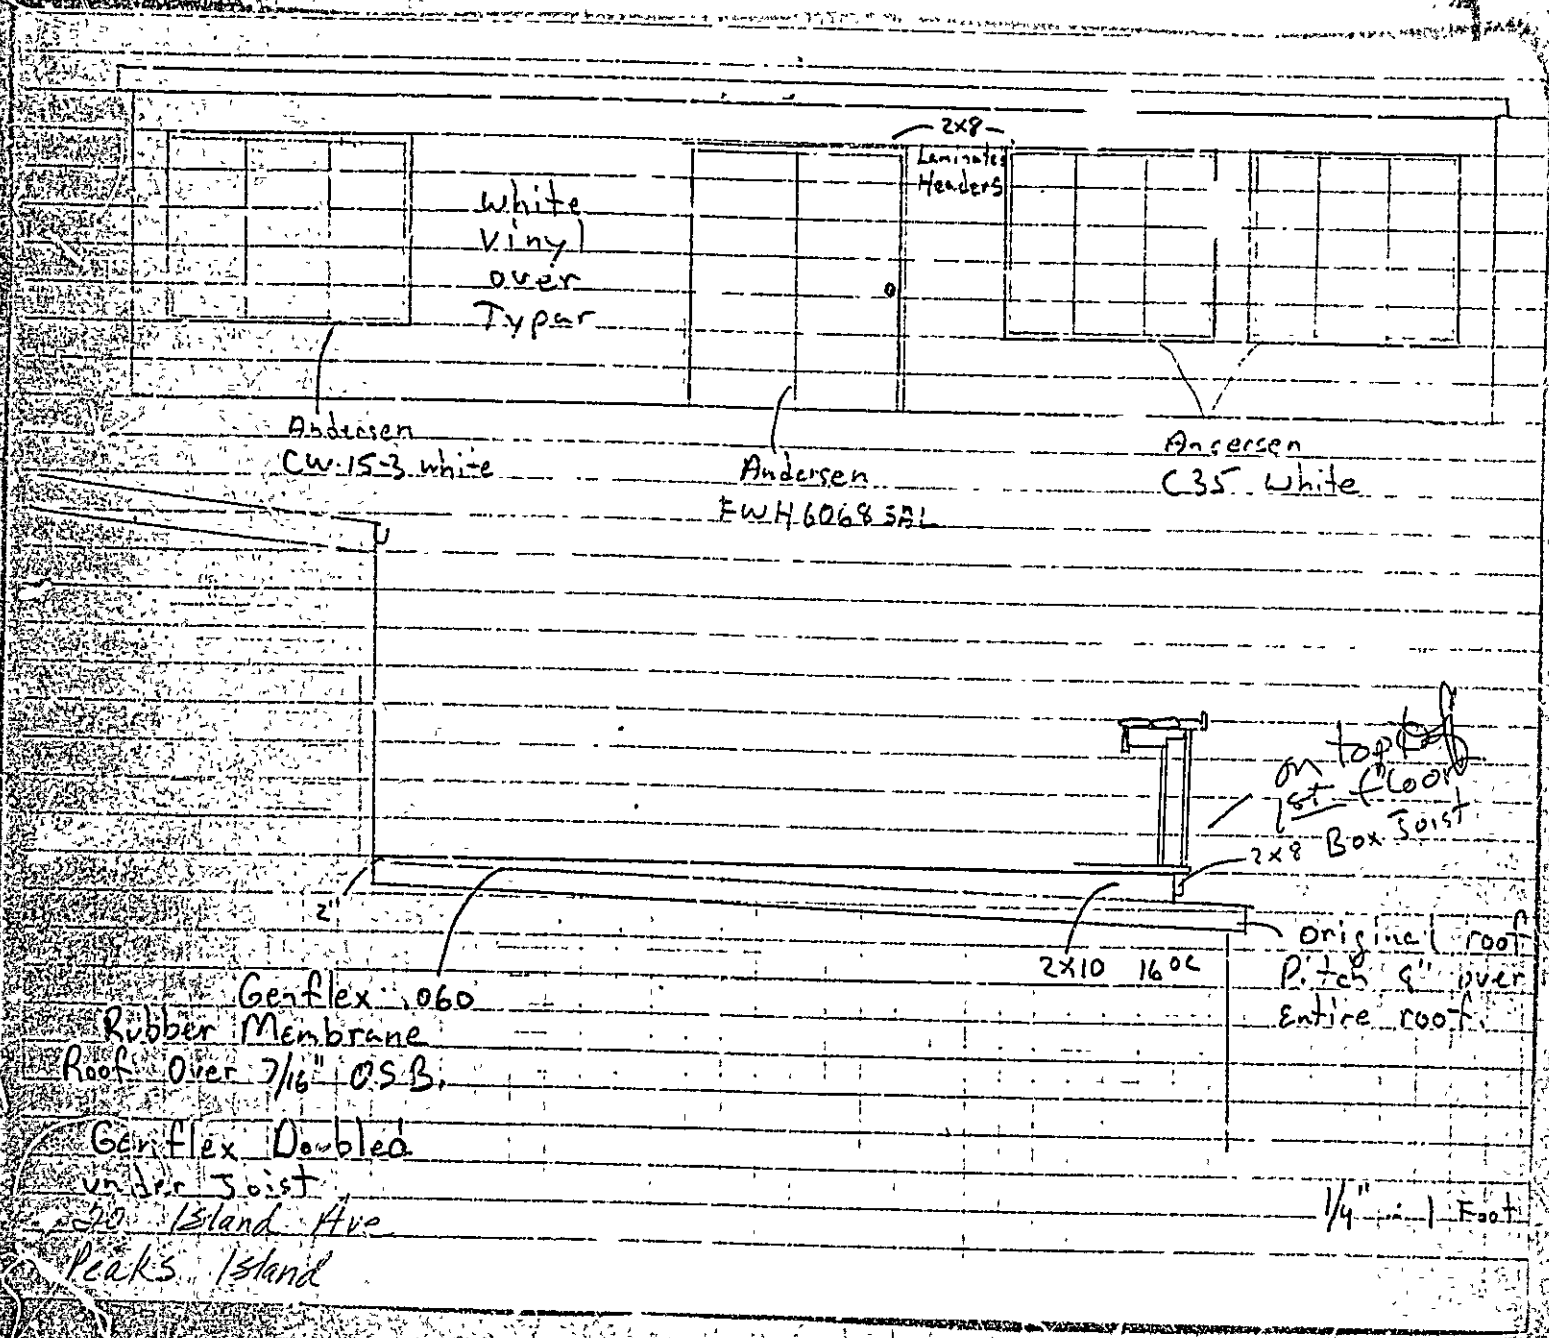 2x8
Laminated
Headers
white
Vinyl
over
Typar
Andersen
CW-15-3 white
Andersen
FWH6068 SAL
Andersen
C35 white
on top of
1st floor
2x8 Box Joist
2"
2x10 16 OC
original roof
Pitch 8" over
Entire roof.
Genflex .060
Rubber Membrane
Roof Over 7/16" O.S.B.
Genflex Doubled
under Joist
Island Ave
Peaks Island
1/4" = 1 Foot